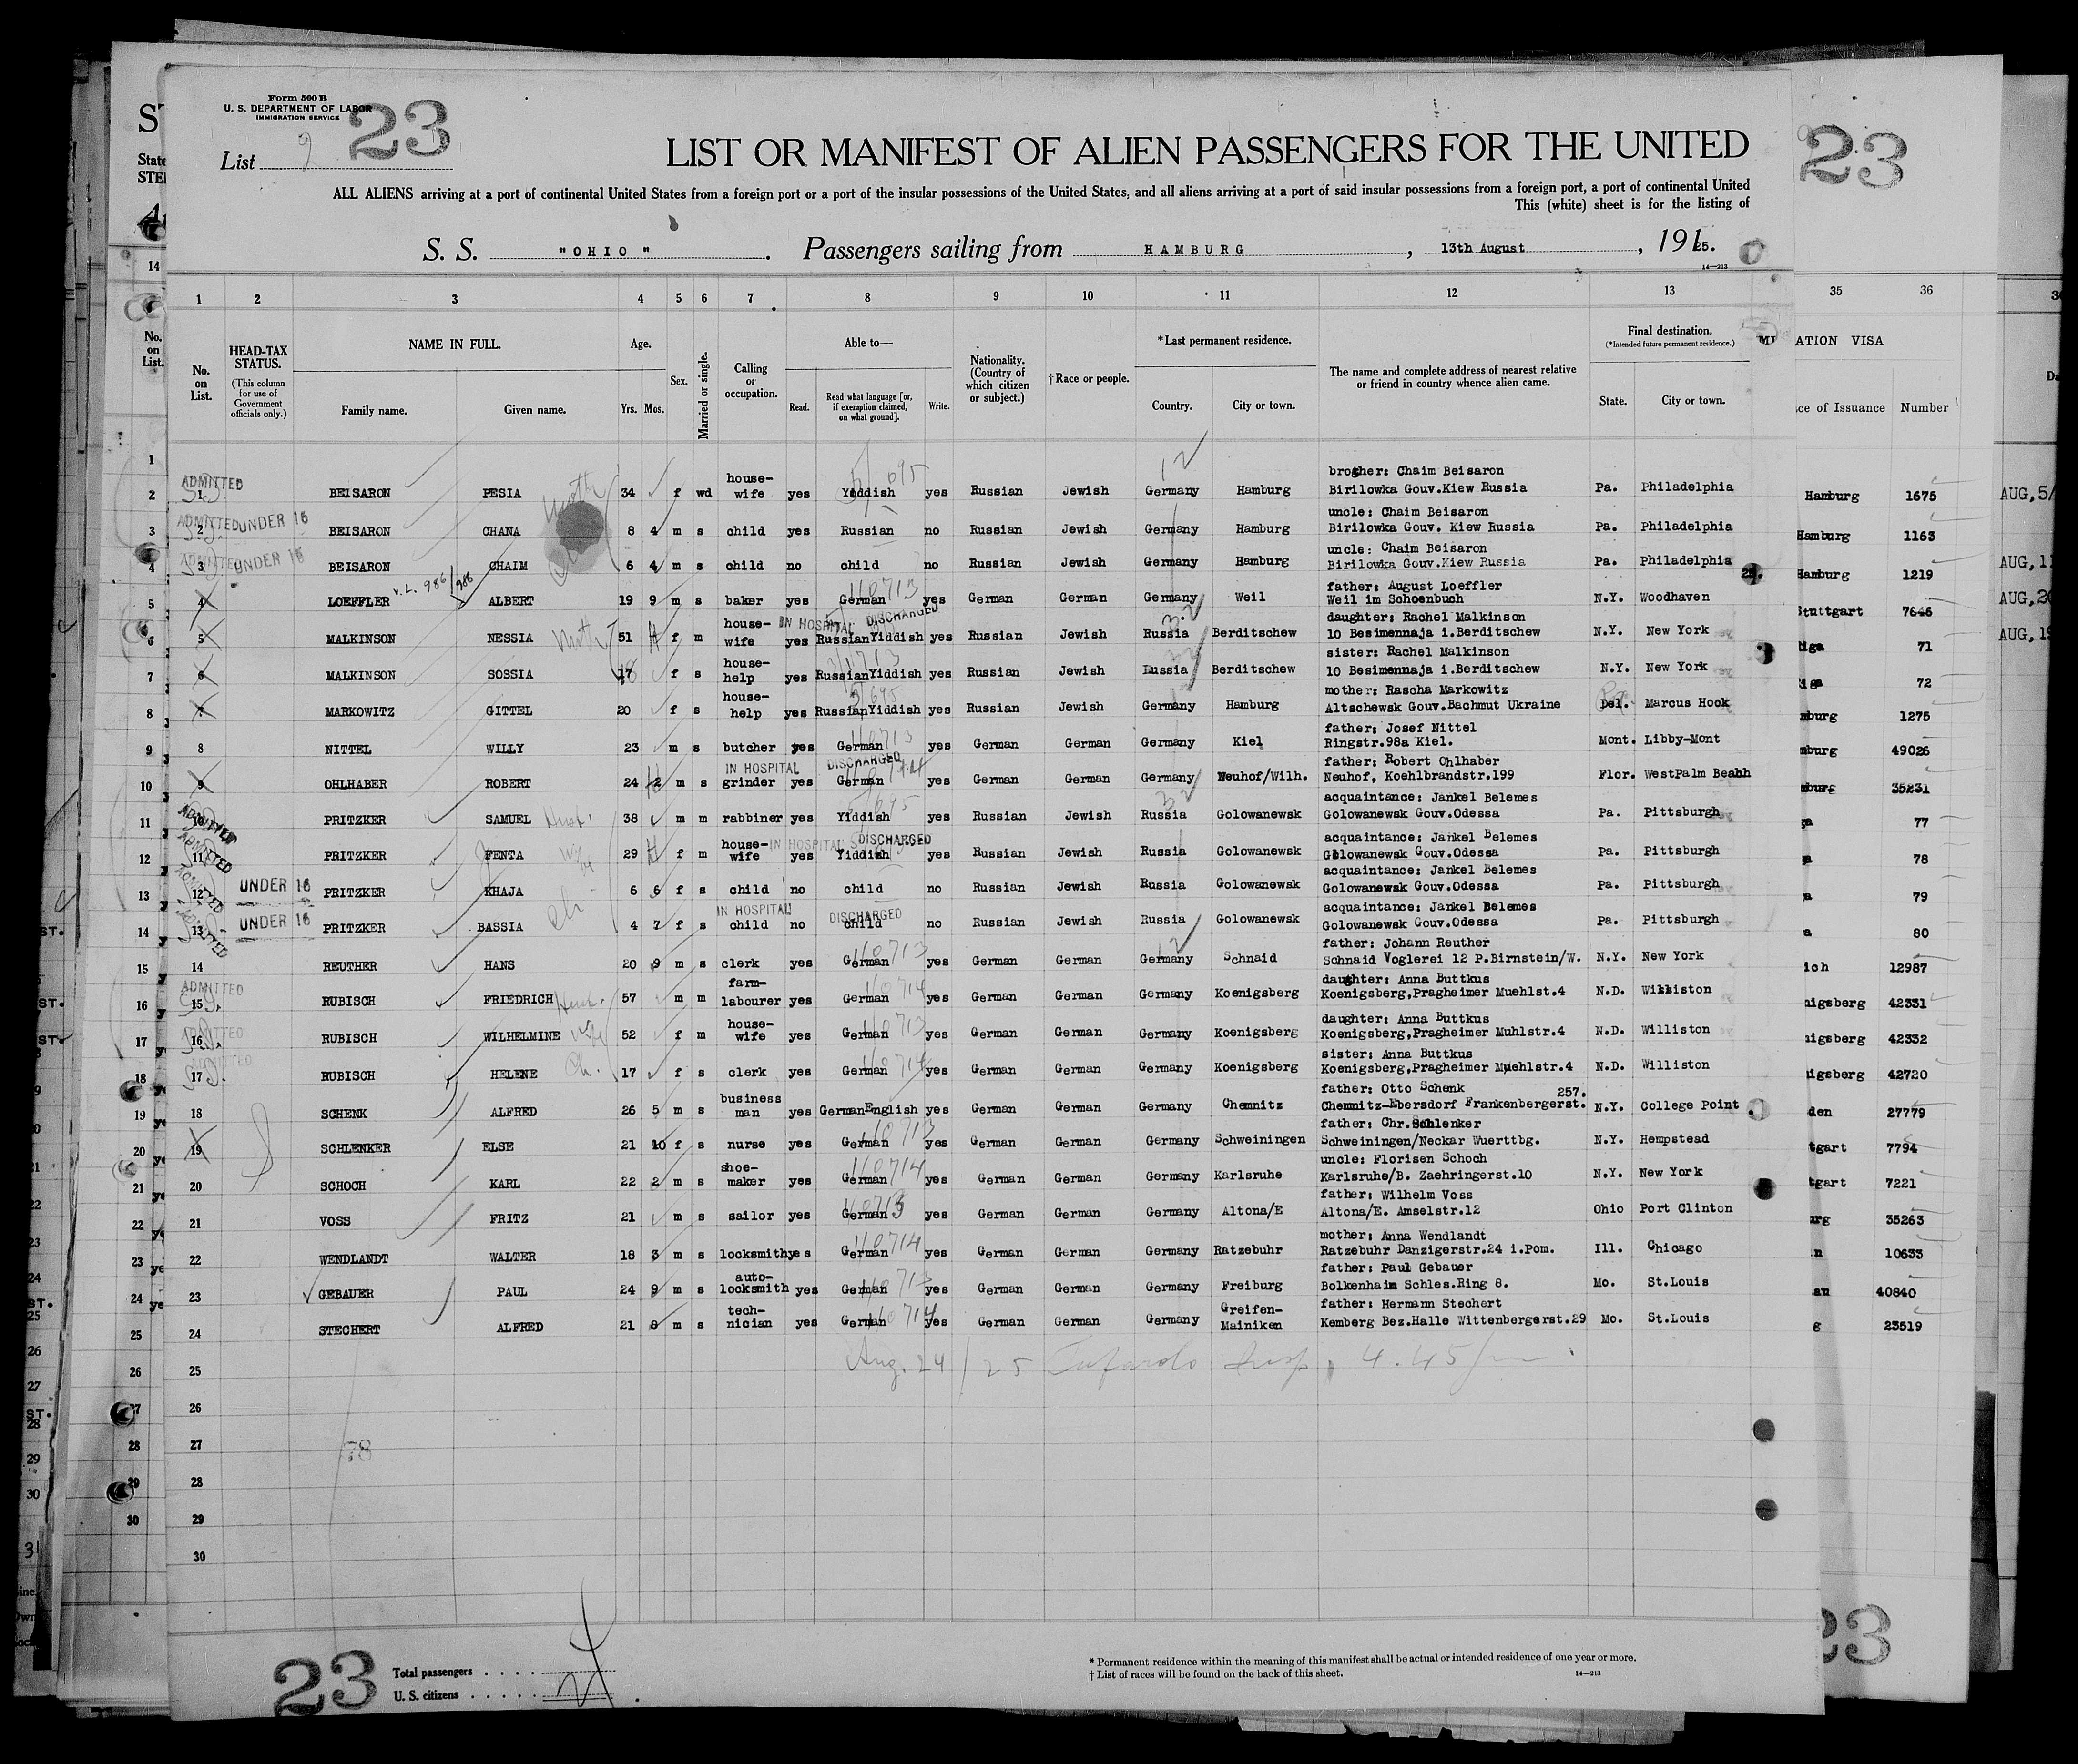 Form 500 B
U. S. DEPARTMENT OF LABOR
IMMIGRATION SERVICE
23
List 9
LIST OR MANIFEST OF ALIEN PASSENGERS FOR THE UNITED
23
ALL ALIENS arriving at a port of continental United States from a foreign port or a port of the insular possessions of the United States, and all aliens arriving at a port of said insular possessions from a foreign port, a port of continental United
This (white) sheet is for the listing of
S. S. "OHIO". Passengers sailing from HAMBURG, 13th August, 191 25.
14—213
1 2 3 4 5 6 7 8 9 10 11 12 13 35 36
No. on List. HEAD-TAX STATUS. (This column for use of Government officials only.) NAME IN FULL. Family name. Given name. Age. Yrs. Mos. Sex. Married or single. Calling or occupation. Able to— Read. Read what language [or, if exemption claimed, on what ground]. Write. Nationality. (Country of which citizen or subject.) †Race or people. *Last permanent residence. Country. City or town. The name and complete address of nearest relative or friend in country whence alien came. Final destination. (*Intended future permanent residence.) State. City or town. ATION VISA ce of Issuance Number
ADMITTED 1 BEISARON PESIA 34 f wd house-wife yes Yiddish yes Russian Jewish Germany Hamburg brother: Chaim Beisaron Birilowka Gouv.Kiew Russia Pa. Philadelphia Hamburg 1675 AUG,5/
ADMITTED UNDER 16 2 BEISARON CHANA 8 4 m s child yes Russian no Russian Jewish Germany Hamburg uncle: Chaim Beisaron Birilowka Gouv. Kiew Russia Pa. Philadelphia Hamburg 1163
ADMITTED UNDER 16 3 BEISARON CHAIM 6 4 m s child no child no Russian Jewish Germany Hamburg uncle: Chaim Beisaron Birilowka Gouv.Kiew Russia Pa. Philadelphia Hamburg 1219 AUG,11
4 LOEFFLER v.L. 986/986 ALBERT 19 9 m s baker yes German 110713 yes German German Germany Weil father: August Loeffler Weil im Schoenbuch N.Y. Woodhaven Stuttgart 7646 AUG,20
5 MALKINSON NESSIA 51 f m house-wife IN HOSPITAL DISCHARGED yes Russian Yiddish yes Russian Jewish Russia Berditschew daughter: Rachel Malkinson 10 Besimennaja i.Berditschew N.Y. New York iga 71 AUG,19
6 MALKINSON SOSSIA 17 f s house-help yes Russian Yiddish yes Russian Jewish Russia Berditschew sister: Rachel Malkinson 10 Besimennaja i.Berditschew N.Y. New York iga 72
7 MARKOWITZ GITTEL 20 f s house-help yes Russian Yiddish yes Russian Jewish Germany Hamburg mother: Rascha Markowitz Altschewsk Gouv.Bachmut Ukraine Del. Marcus Hook mburg 1275
8 NITTEL WILLY 23 m s butcher yes German 110713 yes German German Germany Kiel father: Josef Nittel Ringstr.98a Kiel. Mont. Libby-Mont mburg 49026
9 OHLHABER ROBERT 24 m s IN HOSPITAL DISCHARGED grinder yes German yes German German Germany Neuhof/Wilh. father: Robert Ohlhaber Neuhof, Koehlbrandstr.199 Flor. WestPalm Beahh mburg 35231
ADMITTED 10 PRITZKER SAMUEL 38 m m rabbiner yes Yiddish yes Russian Jewish Russia Golowanewsk acquaintance: Jankel Belemes Golowanewsk Gouv.Odessa Pa. Pittsburgh a 77
ADMITTED 11 PRITZKER FENTA wife 29 f m house-wife IN HOSPITAL DISCHARGED yes Yiddish yes Russian Jewish Russia Golowanewsk acquaintance: Jankel Belemes Golowanewsk Gouv.Odessa Pa. Pittsburgh a 78
ADMITTED 12 UNDER 16 PRITZKER KHAJA 6 6 f s child no child no Russian Jewish Russia Golowanewsk acquaintance: Jankel Belemes Golowanewsk Gouv.Odessa Pa. Pittsburgh a 79
ADMITTED 13 UNDER 16 PRITZKER BASSIA 4 7 f s IN HOSPITAL DISCHARGED child no child no Russian Jewish Russia Golowanewsk acquaintance: Jankel Belemes Golowanewsk Gouv.Odessa Pa. Pittsburgh a 80
14 REUTHER HANS 20 9 m s clerk yes German 110713 yes German German Germany Schnaid father: Johann Reuther Schnaid Voglerei 12 P.Birnstein/W. N.Y. New York ich 12987
ADMITTED 15 RUBISCH FRIEDRICH 57 m m farm-labourer yes German 110714 yes German German Germany Koenigsberg daughter: Anna Buttkus Koenigsberg,Pragheimer Muehlst.4 N.D. Williston nigsberg 42331
ADMITTED 16 RUBISCH WILHELMINE wife 52 f m house-wife yes German 110713 yes German German Germany Koenigsberg daughter: Anna Buttkus Koenigsberg,Pragheimer Muhlstr.4 N.D. Williston nigsberg 42332
ADMITTED 17 RUBISCH HELENE Ch. 17 f s clerk yes German 110714 yes German German Germany Koenigsberg sister: Anna Buttkus Koenigsberg,Pragheimer Muehlstr.4 N.D. Williston igsberg 42720
18 SCHENK ALFRED 26 5 m s business man yes German English yes German German Germany Chemnitz father: Otto Schenk 257. Chemnitz-Ebersdorf Frankenbergerst. N.Y. College Point den 27779
19 SCHLENKER ELSE 21 10 f s nurse yes German 110713 yes German German Germany Schweiningen father: Chr.Schlenker Schweiningen/Neckar Wuerttbg. N.Y. Hempstead tgart 7794
20 SCHOCH KARL 22 2 m s shoe-maker yes German 110714 yes German German Germany Karlsruhe uncle: Florisen Schoch Karlsruhe/B. Zaehringerst.10 N.Y. New York tgart 7221
21 VOSS FRITZ 21 m s sailor yes German 110713 yes German German Germany Altona/E father: Wilhelm Voss Altona/E. Amselstr.12 Ohio Port Clinton urg 35263
22 WENDLANDT WALTER 18 3 m s locksmith yes German 110714 yes German German Germany Ratzebuhr mother: Anna Wendlandt Ratzebuhr Danzigerstr.24 i.Pom. Ill. Chicago n 10633
23 GEBAUER PAUL 24 9 m s auto-locksmith yes German 110713 yes German German Germany Freiburg father: Paul Gebauer Bolkenhain Schles.Ring 8. Mo. St.Louis au 40840
24 STECHERT ALFRED 21 8 m s tech-nician yes German 110714 yes German German Germany Greifen-Mainiken father: Hermann Stechert Kemberg Bez.Halle Wittenbergerst.29 Mo. St.Louis g 23519
25 Aug. 24/25 4.45
26
27
78
28
29
30
23 Total passengers
U. S. citizens
* Permanent residence within the meaning of this manifest shall be actual or intended residence of one year or more.
† List of races will be found on the back of this sheet.
14—213
23